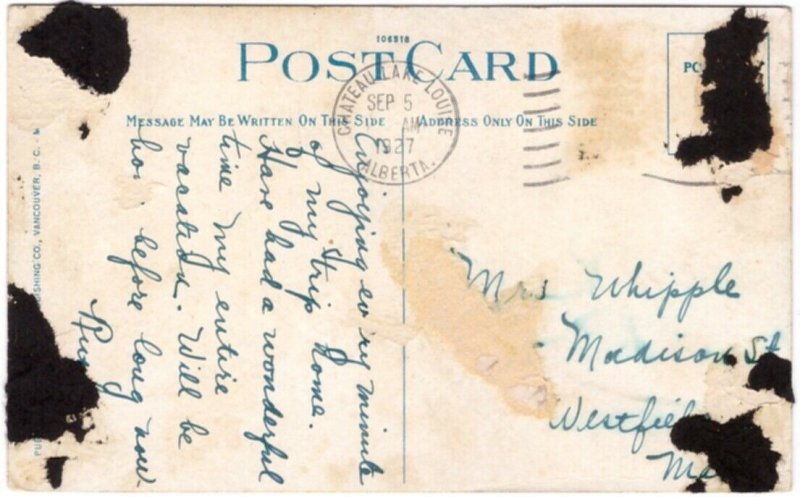 106518
POST CARD
MESSAGE MAY BE WRITTEN ON THIS SIDE
ADDRESS ONLY ON THIS SIDE
CHATEAU LAKE LOUISE
SEP 5
AM
1927
ALBERTA.
PO
Enjoying every minute
of my trip home.
Have had a wonderful
time my entire
vacation. Will be
before long now
Mrs Whipple
Madison St
SHING CO., VANCOUVER, B. C.